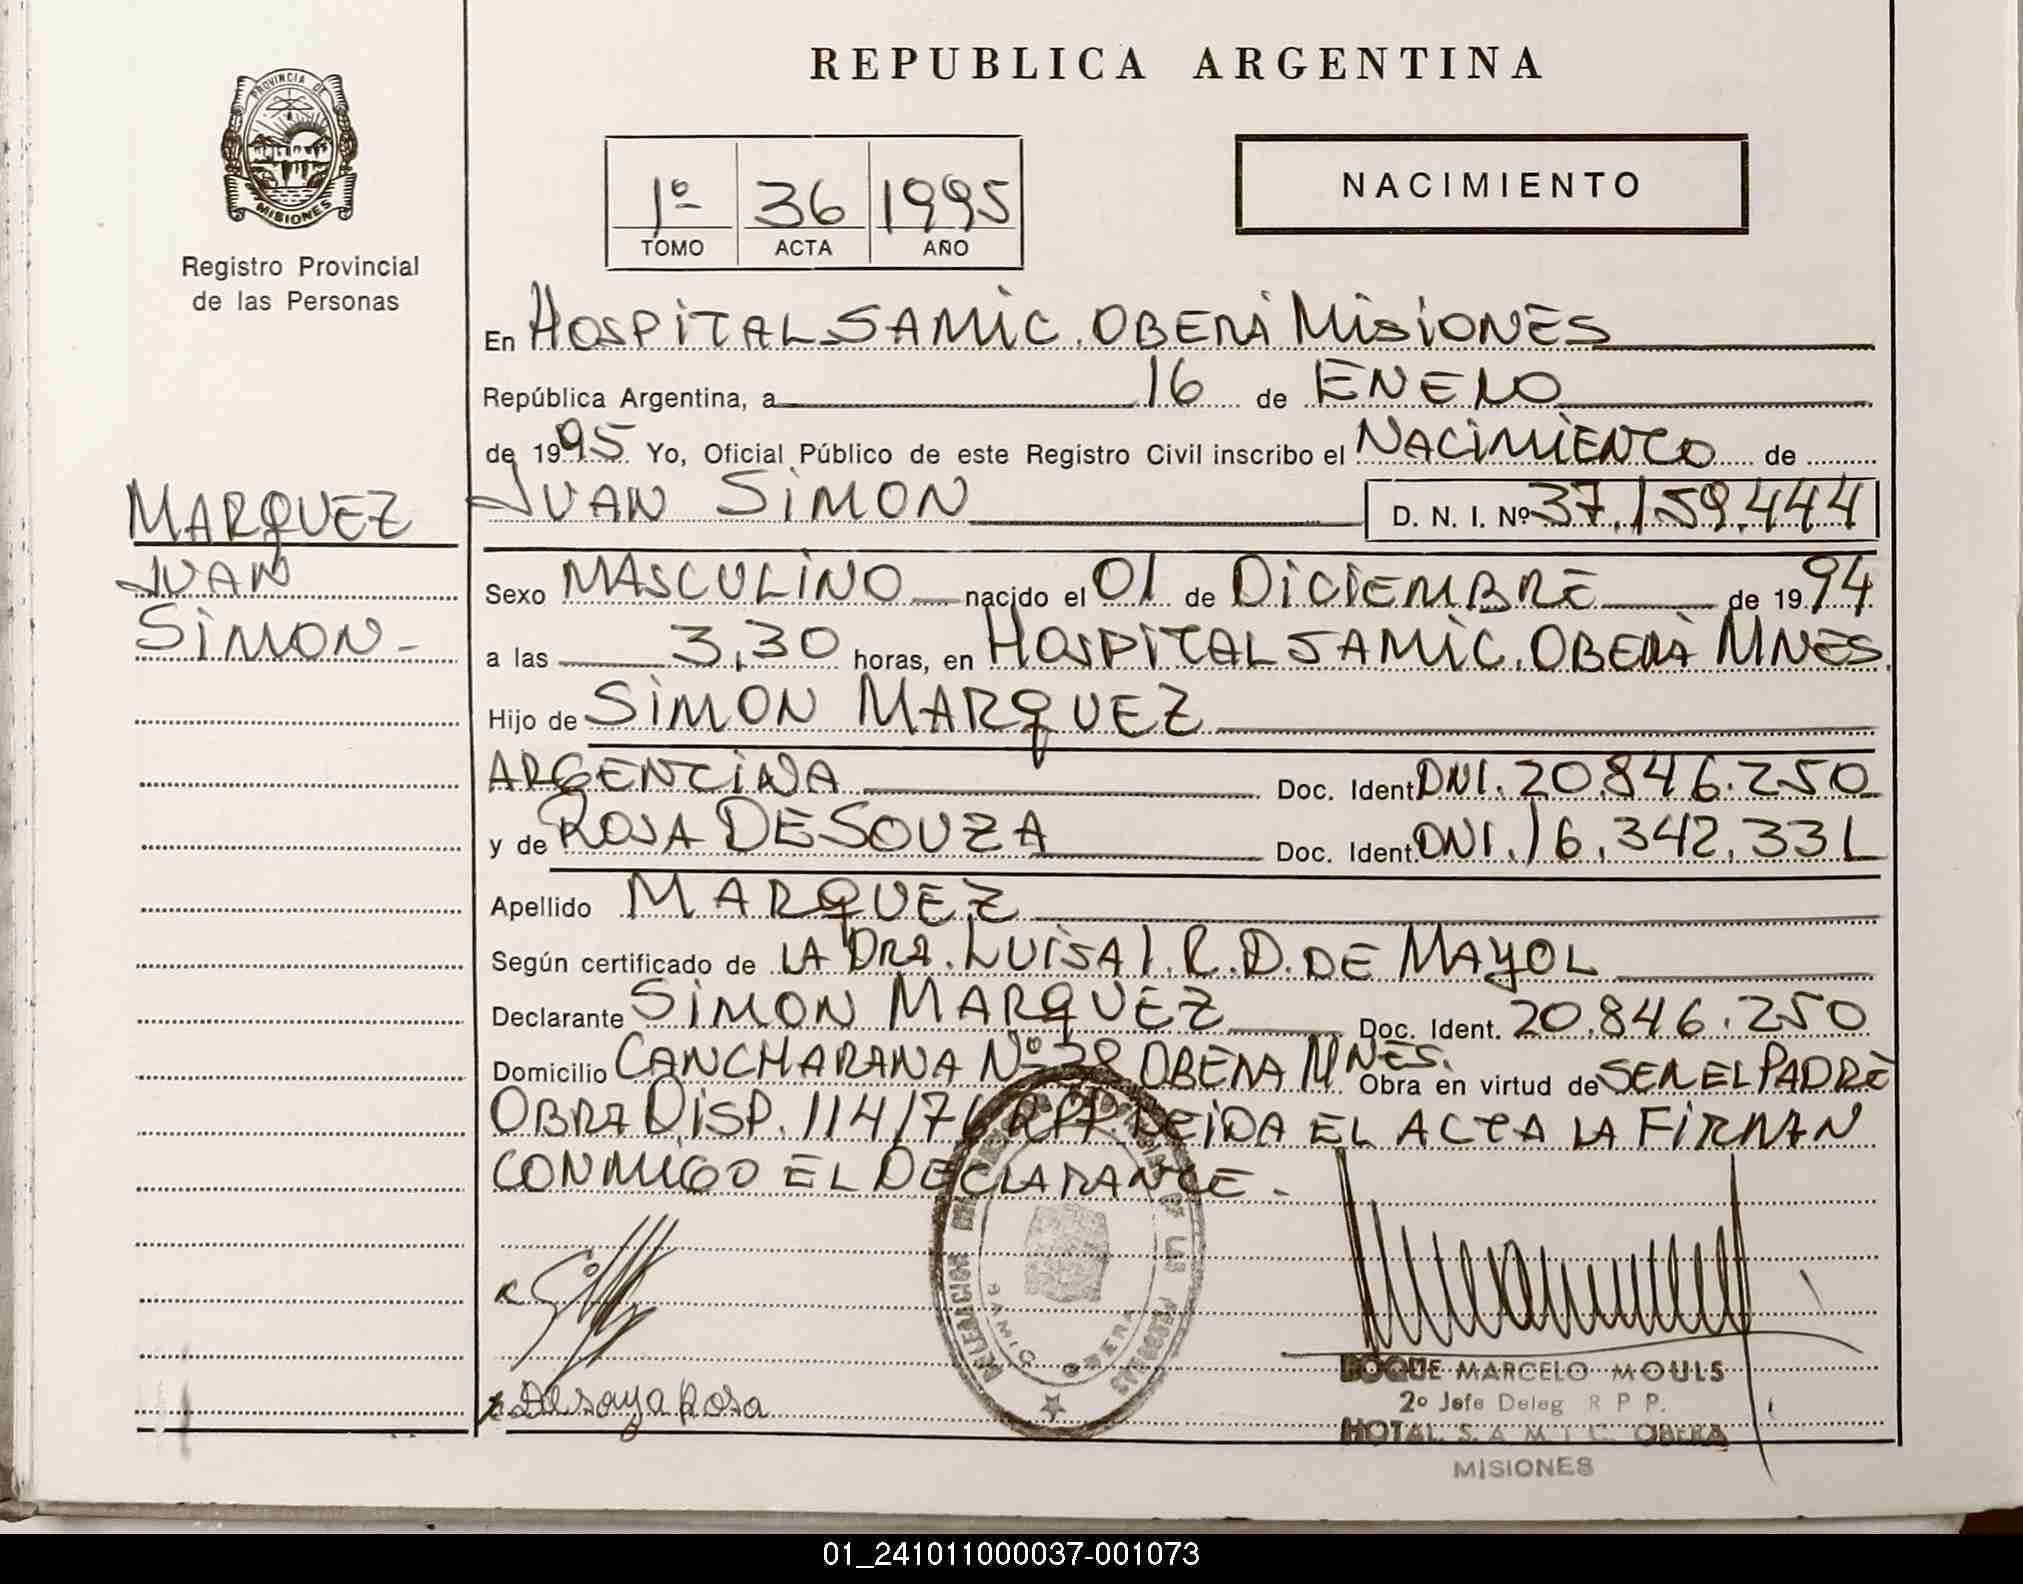 REPUBLICA ARGENTINA
PROVINCIA DE
MISIONES
Registro Provincial
de las Personas
1º 36 1995
TOMO ACTA AÑO
NACIMIENTO
En HOSPITAL SAMIC. OBERÁ MISIONES
República Argentina, a 16 de ENERO
de 1995 Yo, Oficial Público de este Registro Civil inscribo el NACIMIENTO de
MARQUEZ
JUAN
SIMON-
JUAN SIMON D. N. I. Nº 37.159.444
Sexo MASCULINO nacido el 01 de DICIEMBRE de 1994
a las 3,30 horas, en HOSPITAL SAMIC. OBERÁ MNES.
Hijo de SIMON MARQUEZ
ARGENTINA Doc. Ident. DNI. 20.846.250
y de ROSA DE SOUZA Doc. Ident. DNI. 16.342.331
Apellido MARQUEZ
Según certificado de LA DRA. LUISA I. R. D. DE MAYOL
Declarante SIMON MARQUEZ Doc. Ident. 20.846.250
Domicilio CANCHARANA Nº 38 OBERA MNES. Obra en virtud de SER EL PADRE
OBRA DISP. 114/76 RPP. LEIDA EL ACTA LA FIRMAN
CONMIGO EL DECLARANTE.
DE LAS PERSONAS
SAMIC OBERA
Rosa
ROQUE MARCELO MOULS
2º Jefe Deleg R P P.
HOTAL. S. A. M. I. C. OBERA
MISIONES
01_241011000037-001073